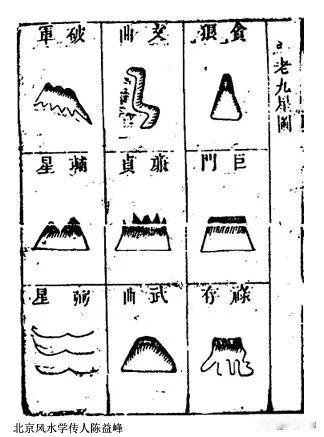 老九星圖
貪狼
文曲
破軍
巨門
廉貞
輔星
祿存
武曲
弼星
北京风水学传人陈益峰